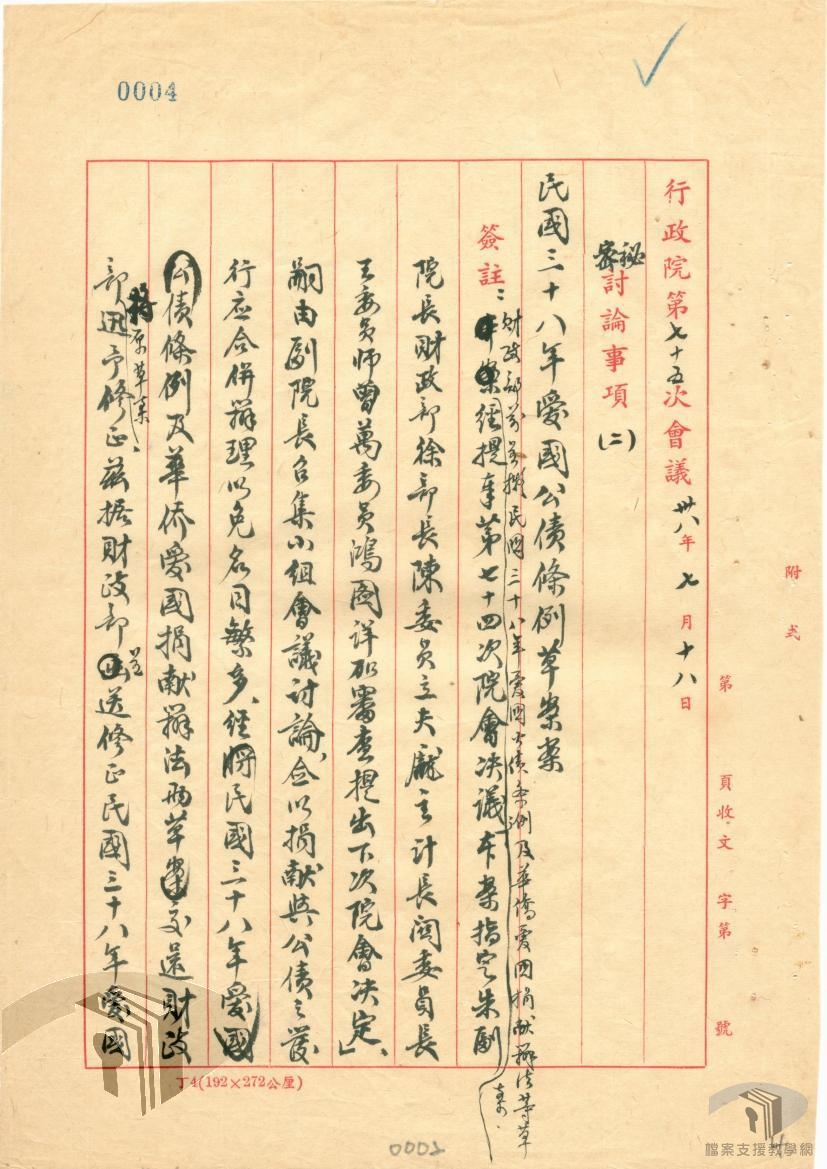 0004
附 式
第 頁收文 字第 號
行政院第七十五次會議 卅八年七月十八日
秘密
討論事項(二)
民國三十八年愛國公債條例草案案
簽註：
財政部前簽擬民國三十八年愛國公債條例及華僑愛國捐献辦法等草案
本案經提奉第七十四次院會决議本案指定朱副
院長財政部徐部長陳委員立夫龐主計長閻委員長
王委員師曾萬委員鴻圖詳研審查提出下次院會决定」、
嗣由副院長召集小組會議討論、僉以捐献與公債之發
行应合併辦理以免名目繁多、經將民國三十八年愛國
公債條例及華侨愛國捐献辦法兩草案交還財政
將原草案
部迅予修正、茲據財政部呈送修正民國三十八年愛國
丁4(192×272公厘)
0002
檔案支援教學網